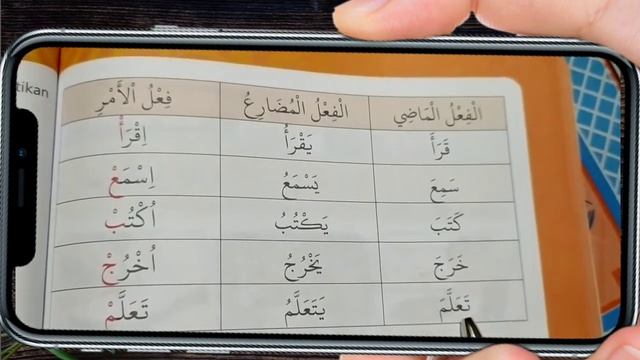 tikan
الْفِعْلُ الْمَاضِي الْفِعْلُ الْمُضَارِعُ فِعْلُ الْأَمْرِ
قَرَأَ يَقْرَأُ اِقْرَأْ
سَمِعَ يَسْمَعُ اِسْمَعْ
كَتَبَ يَكْتُبُ اُكْتُبْ
خَرَجَ يَخْرُجُ اُخْرُجْ
تَعَلَّمَ يَتَعَلَّمُ تَعَلَّمْ